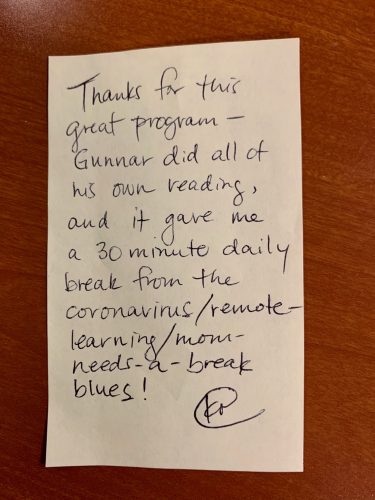 Thanks for this
great program —
Gunnar did all of
his own reading,
and it gave me
a 30 minute daily
break from the
coronavirus/remote-
learning/mom-
needs-a-break
blues!